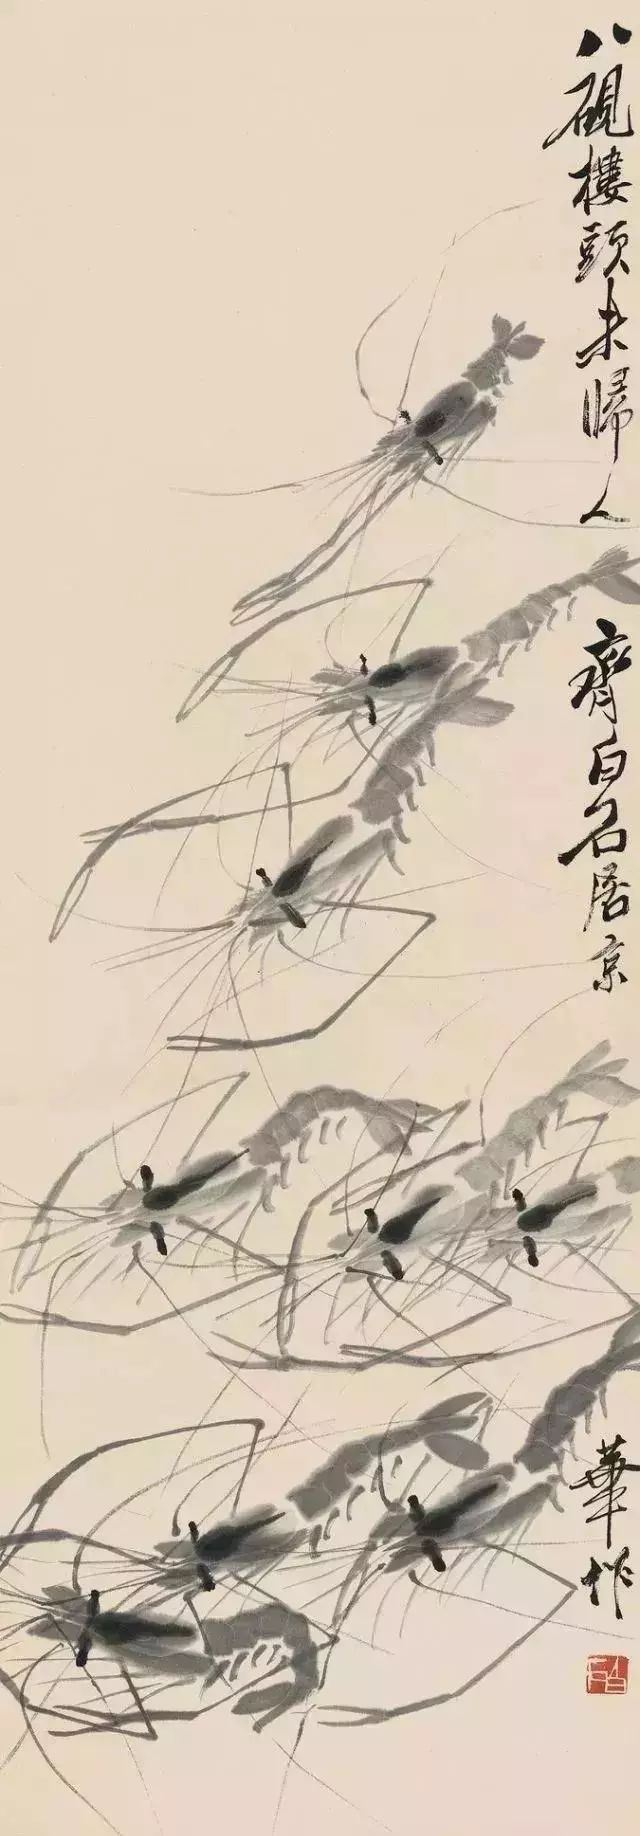 八砚樓頭未歸人
齊白石居京
華作
白石